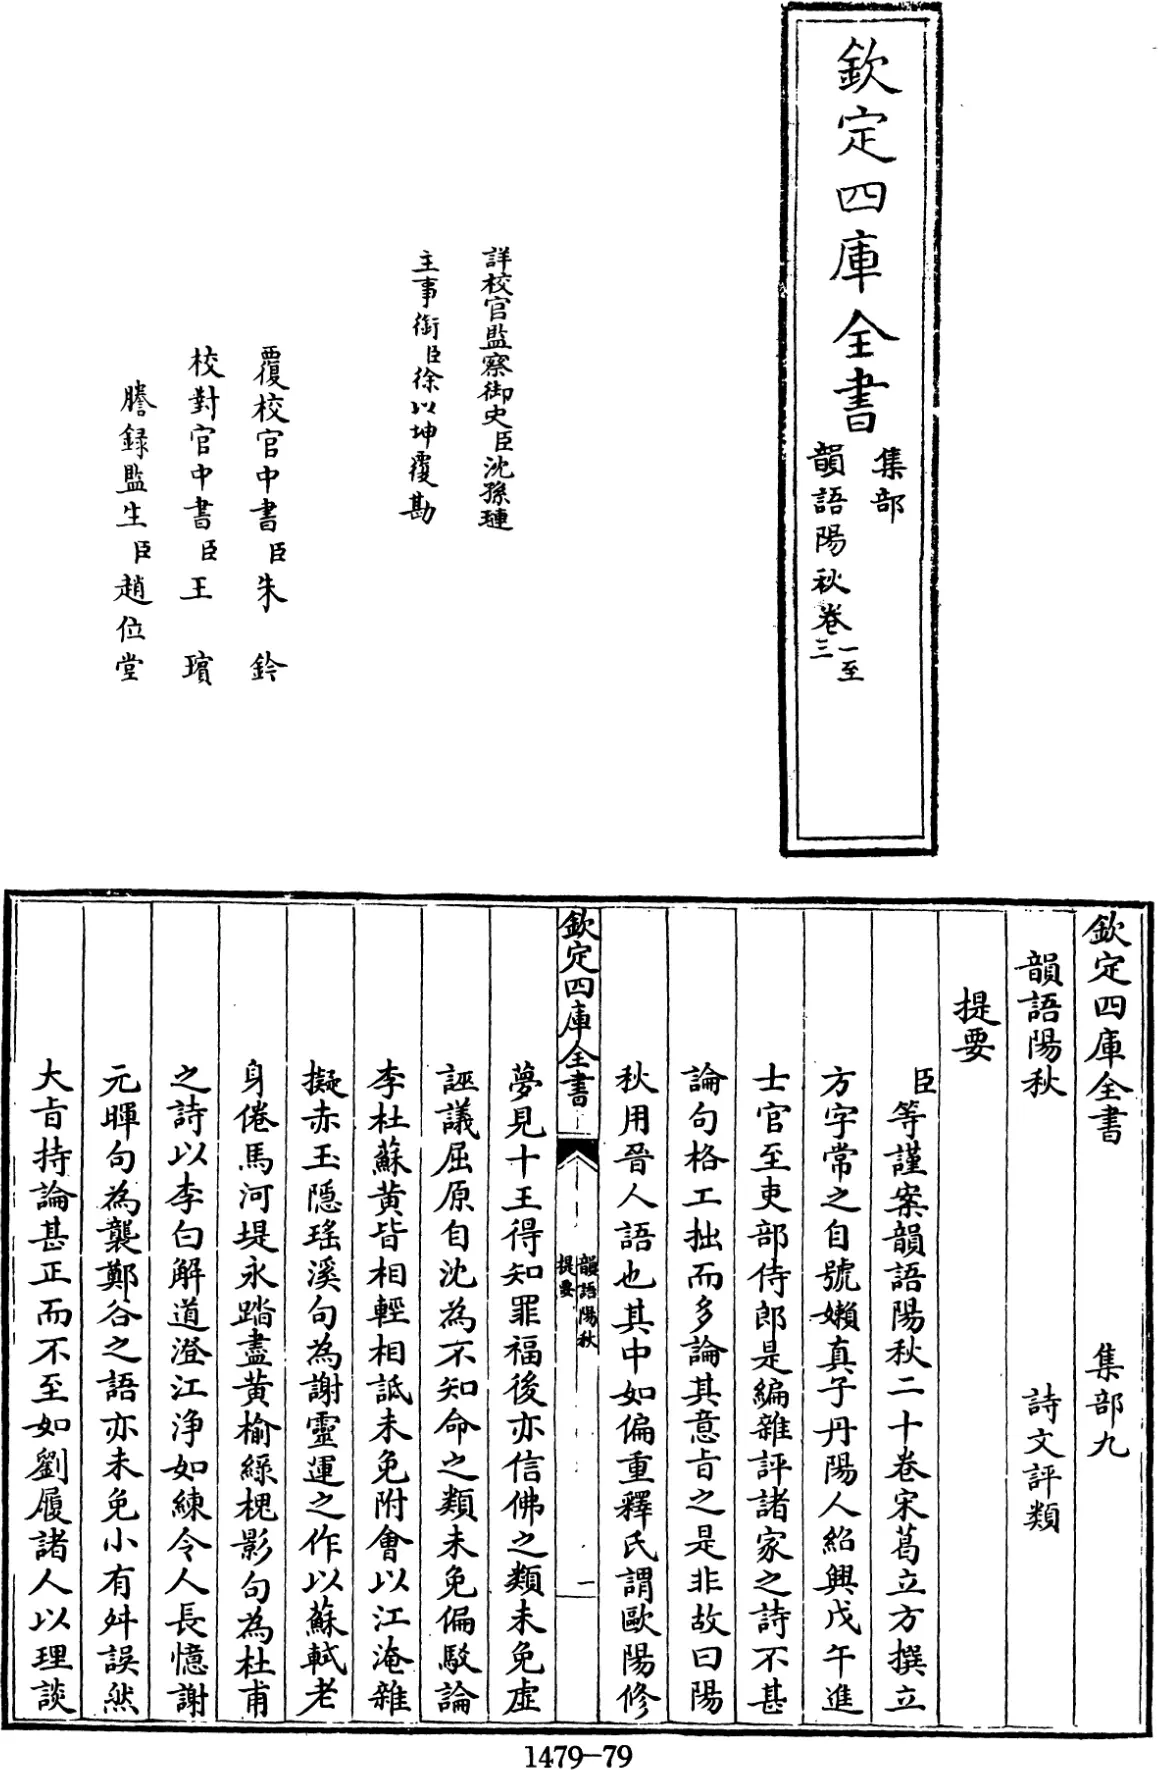 欽定四庫全書
集部
韻語陽秋卷一至三
詳校官監察御史臣沈孫璉
主事銜臣徐以坤覆勘
覆校官中書臣朱鈐
校對官中書臣王璸
謄錄監生臣趙位堂
欽定四庫全書　集部九
韻語陽秋　詩文評類
提要
臣等謹案韻語陽秋二十卷宋葛立方撰立
方字常之自號嬾真子丹陽人紹興戊午進
士官至吏部侍郎是編雜評諸家之詩不甚
論句格工拙而多論其意旨之是非故曰陽
秋用晉人語也其中如偏重釋氏謂歐陽修
欽定四庫全書
韻語陽秋
提要
一
夢見十王得知罪福後亦信佛之類未免虛
誣議屈原自沈為不知命之類未免偏駁論
李杜蘇黃皆相輕相詆未免附會以江淹雜
擬赤玉隱瑤溪句為謝靈運之作以蘇軾老
身倦馬河堤永踏盡黃榆綠槐影句為杜甫
之詩以李白解道澄江淨如練令人長憶謝
元暉句為襲鄭谷之語亦未免小有舛誤然
大旨持論甚正而不至如劉履諸人以理談
1479—79